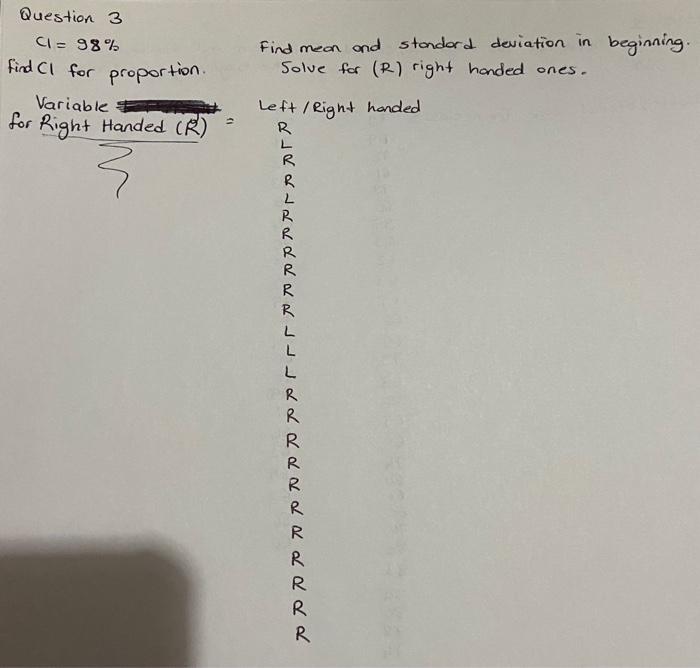 Question 3
CI = 98%
Find mean and standard deviation in beginning.
find CI for proportion.
Solve for (R) right handed ones.
Variable
for Right Handed (R) =
Left / Right handed
R
L
R
R
L
R
R
R
R
R
R
L
L
L
R
R
R
R
R
R
R
R
R
R
R